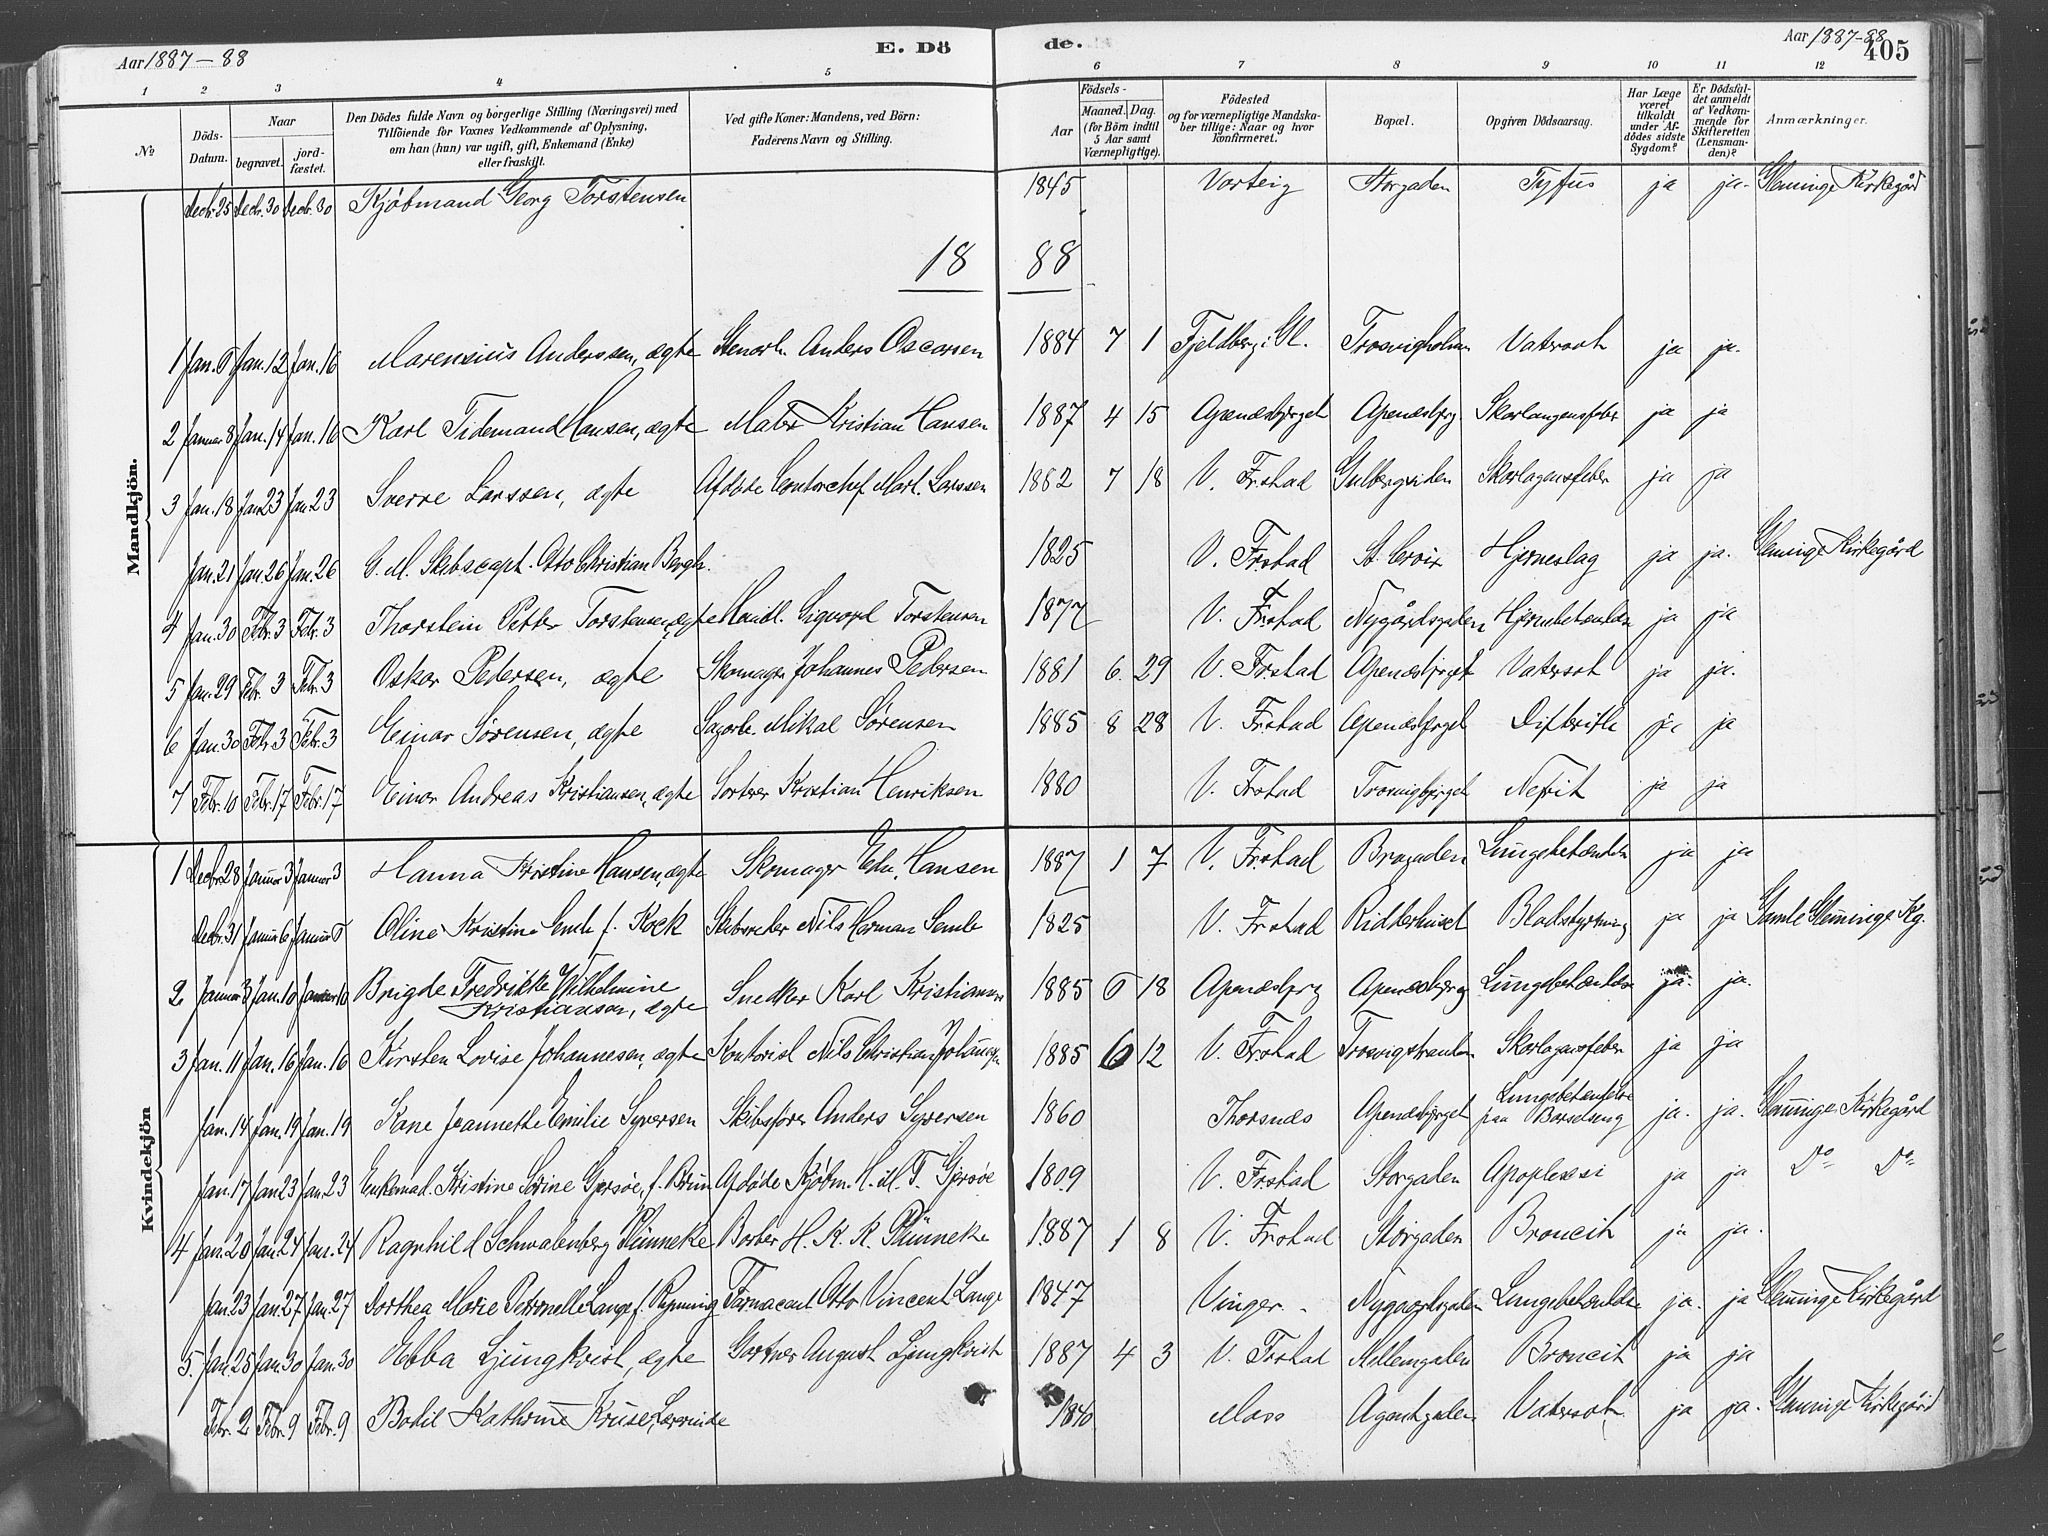 Aar 1887-88
E. Dö
de.
Aar 1887-88
405
1 2 3 4 5 6 7 8 9 10 11 12
No
Döds-Datum.
Naar
begravet.
jordfæstet.
Den Dödes fulde Navn og borgerlige Stilling (Næringsvei) med
Tilföiende for Voxnes Vedkommende af Oplysning,
om han (hun) var ugift, gift, Enkemand (Enke)
eller fraskilt.
Ved gifte Koner: Mandens, ved Börn:
Faderens Navn og Stilling.
Aar
Födsels-
Maaned. Dag.
(for Börn indtil 5 Aar samt Værnepligtige).
Födested
og for værnepligtige Mandskaber tillige: Naar og hvor konfirmeret.
Bopæl.
Opgiven Dödsaarsag.
Har Læge været tilkaldt under Afdödes sidste Sygdom?
Er Dödsfaldet anmeldt af Vedkommende for Skifteretten (Lensmanden)?
Anmærkninger.
Mandkjön.
Decbr. 25 Decbr. 30 Decbr. 30 Kjøbmand Georg Torstensen 1845 Varteig Storgaden Tyfus ja ja. Glemminge Kirkegård
18 88
1 Jan. 6 Jan. 12 Jan. 16 Marensius Anderssen, ægte Stenarb. Anders Oscarsen 1884 7 1 Fjeldberg i Gl. Trosvigholmen Vatersot ja ja.
2 Januar 8 Jan. 14 Jan. 16 Karl Tidemand Hansen, ægte Maler Kristian Hansen 1887 4 15 Apenæsbjerget Apenæsbjerg. Skarlagensfeber ja ja
3 Jan. 18 Jan 23 Jan 23 Sverre Larssen, ægte Afdøde Contorchef Marl. Larssen 1882 7 18 V. Frstad Gulbergsiden Skarlagensfeber ja ja
Jan. 21 Jan. 26 Jan. 26 G. M. Skibscapt. Otto Christian Bergh. 1825 V. Frstad St. Croix Hjerneslag ja ja. Glemminge Kirkegård
4 Jan. 30 Febr. 3 Febr. 3 Thorstein Petter Torstensen, ægte Handl. Sigvard Torstensen 1877 V. Frstad Nygårdsgaden Hjernebetændelse ja ja
5 Jan. 29 Febr. 3 Febr. 3 Oskar Pedersen, ægte Skomager Johannes Pedersen 1881 6. 29 V. Frstad Apenæsbjerget Vatersot ja ja.
6 Jan. 30 Febr. 3 Febr. 3 Einar Sørensen, ægte Sagarb. Mikal Sørensen 1885 8 28 V. Frstad Apenæsbjerget Difterifte ja ja
7 Febr. 10 Febr. 17 Febr. 17 Einar Andreas Kristiansen, ægte Sorterer Kristian Henriksen 1880 V. Frstad Trosvigbjerget Nefrit ja ja
Kvindekjön
1 Decbr. 28 Januar 3 Januar 3 Hanna Kristine Hansen, ægte Skomager Edv. Hansen 1887 1 7 V. Frstad Brogaden Lungebetændelse ja ja
Decbr. 31 Januar 6 Januar 6 Oline Kristine Semb f. Kock Skibsreder Nils Herman Semb 1825 V. Frstad Ridderhuset Blodstyrtning ja ja Gamle Glemminge Kg.
2 Januar 3 Jan. 10 Januar 10 Brigde Fredrikke Wilhelmine
Kristiansen, ægte Snedker Karl Kristiansen 1885 6 18 Apenæsbjerg Apenæsbjerg Lungebetændelse ja. ja.
3 Jan. 11 Jan. 16 Jan. 16 Kirsten Lovise Johannesen, ægte Kontorist Nils Christian Johannesen 1885 6 12 V. Frstad Trosvigstranden Skarlagensfeber ja ja
Jan. 14 Jan. 19 Jan. 19 Kone Jeannette Emilie Syversen Skibsfører Anders Syversen 1860 Thorsnæs Apenæsbjerget Lungebetændelse paa Barselseng ja. ja. Glemminge Kirkegård
Jan. 17 Jan 23 Jan. 23 Enkemad. Kristine Sørine Gjersøe, f. Bruun Afdøde Kjøbm. H. M. T. Gjersøe 1809 V. Frstad Storgaden Apoplexsi ja ja Do Do
4 Jan. 20 Jan. 24 Jan. 24 Ragnhild Schwalenberg Plünneke Barber H. K. R. Plünneke 1887 1 8 V. Frstad Storgaden Broncit ja ja.
Jan. 23 Jan. 27 Jan. 27 Dorthea Marie Petronelle Lange f. Rynning Farmaceut Otto Vincent Lange 1847 Vinger. Nygaardsgaden Lungebetændelse ja. ja Glemminge Kirkegård
5. Jan. 25 Jan. 30 Jan. 30 Ebba Ljungkvist, ægte Gartner August Ljungkvist 1887 4 3 V. Frstad Mellemgaden Broncit ja ja
Febr. 2 Febr. 9 Febr. 9 Bodil Kathrine Kruse, Lærerinde 1840 Moss Agentgaden Vatersot ja ja. Glemminge Kirkegård